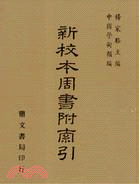 楊家駱主編
中國學術類編
新校本周書附索引
鼎文書局印行